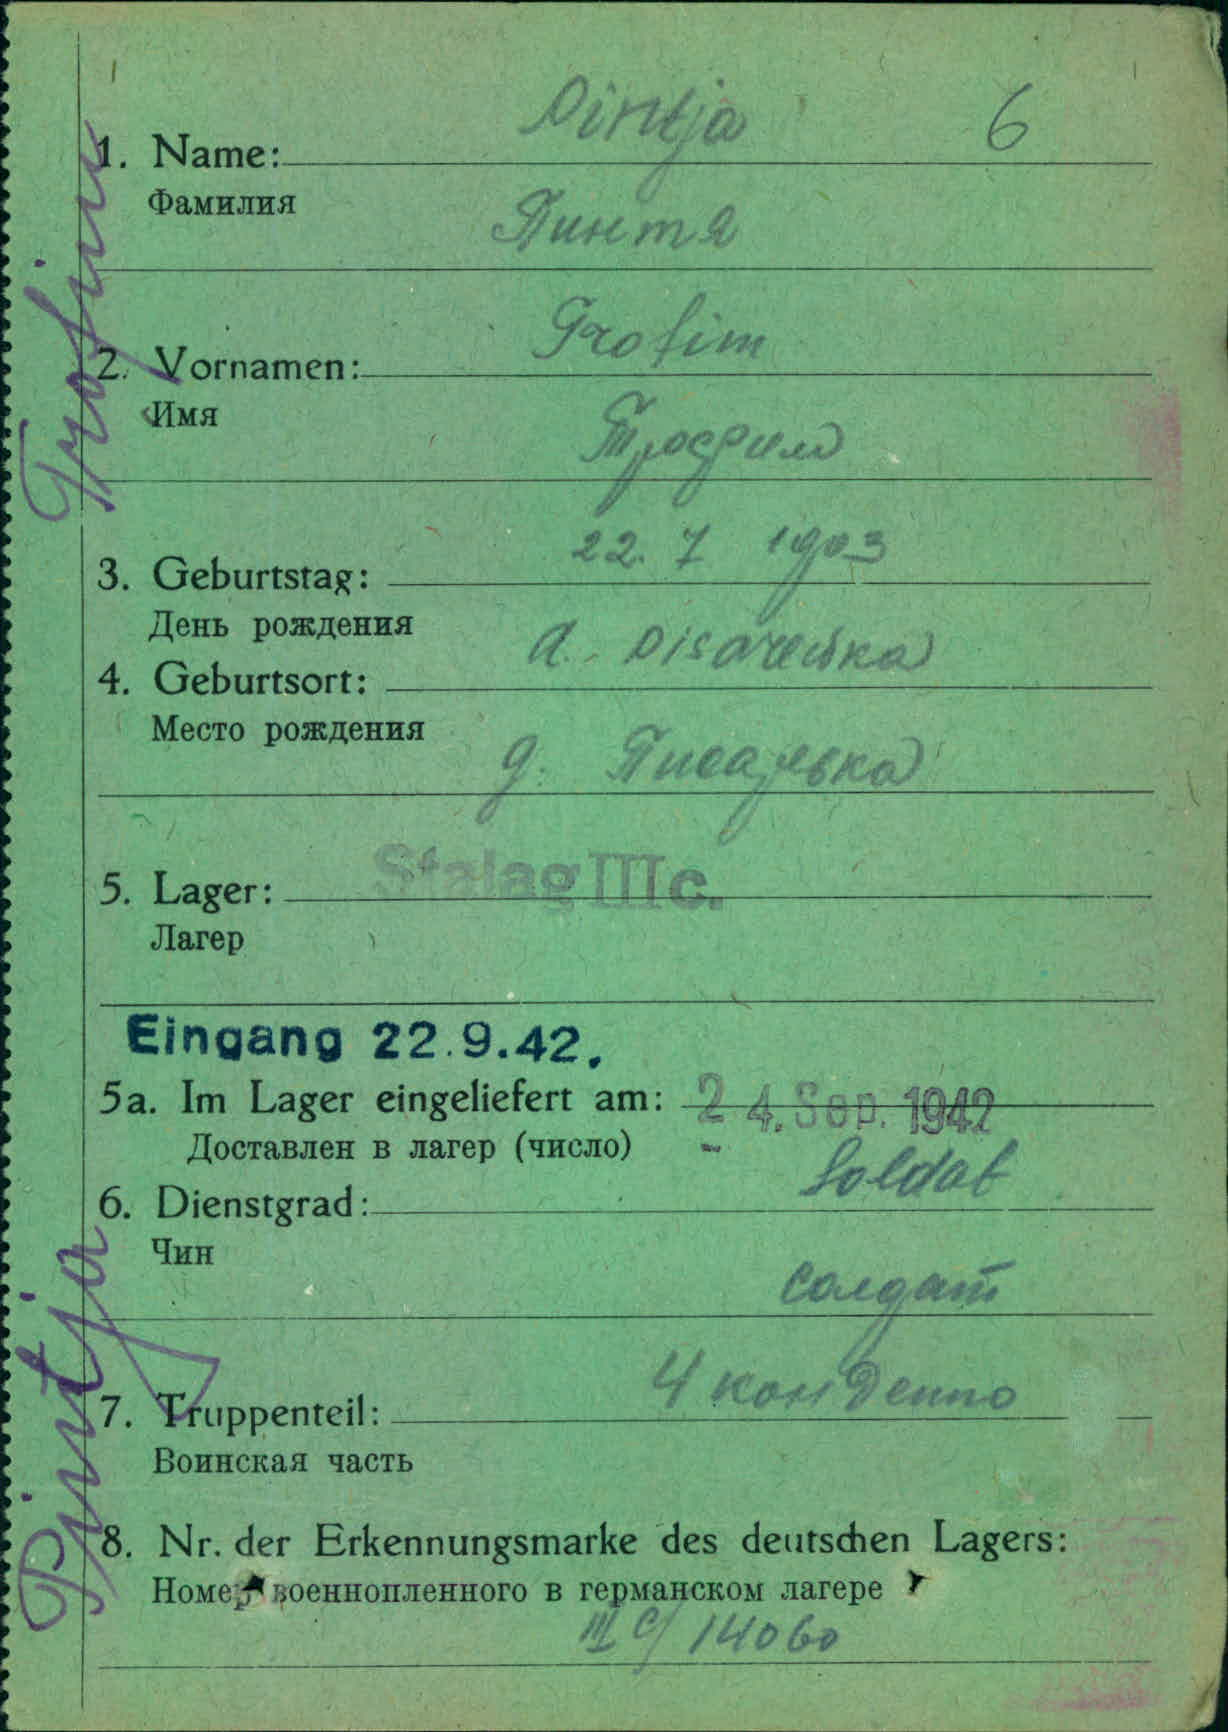 6
Pintja
1. Name:
Фамилия
Пинтя
Trofim
2. Vornamen:
Имя
Трофим
22. 7 1903
3. Geburtstag:
День рождения
d. Pisarewka
4. Geburtsort:
Место рождения
д. Писаревка
Stalag III c.
5. Lager:
Лагер
Eingang 22.9.42.
5a. Im Lager eingeliefert am: 24. Sep. 1942
Доставлен в лагер (число)
Soldat
6. Dienstgrad:
Чин
солдат
4 кон Депо
7. Truppenteil:
Воинская часть
8. Nr. der Erkennungsmarke des deutschen Lagers:
Номер военнопленного в германском лагере
III C/ 14060
Pintja Trofim